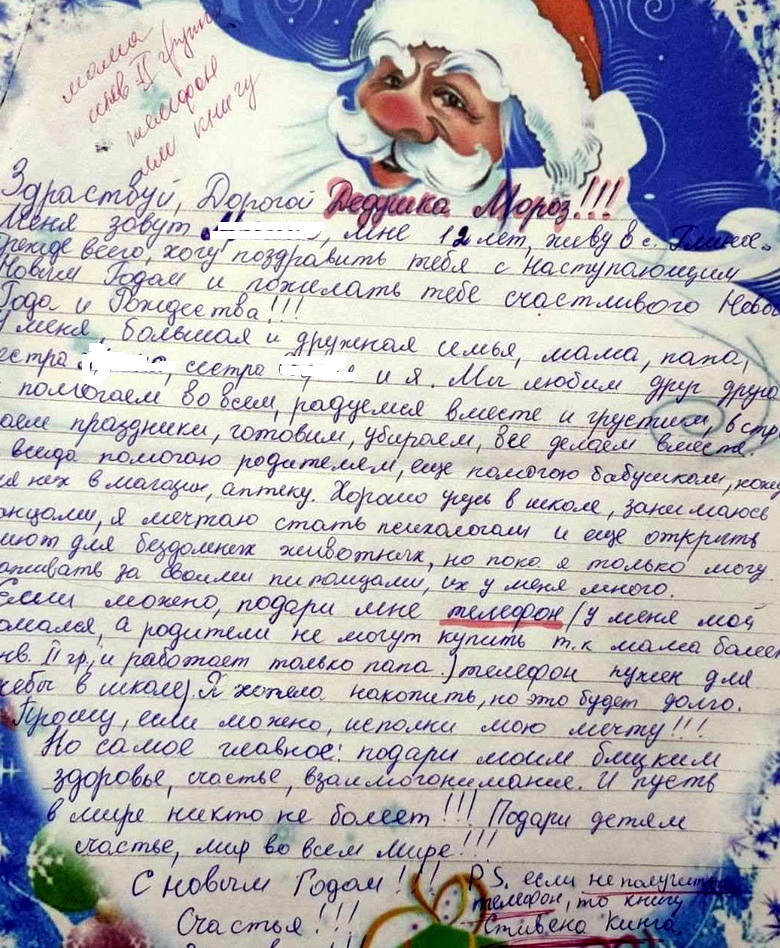 мама
инв II групп
телефон
или книгу
Здраствуй, Дорогой Дедушка Мороз!!!
Меня зовут , мне 12 лет, живу в с.
Прежде всего, хочу поздравить тебя с наступающим
Новым Годом и пожелать тебе счастливого Нового
Года и Рождества!!!
У меня, большая и дружная семья, мама, папа,
сестра , сестра и я. Мы любим друг друга
помогаем во всем, радуемся вместе и грустим, встр
аем праздники, готовим, убираем, все делаем вместе.
всегда помогаю родителям, еще помогаю бабушкам, хожу
ля них в магазин, аптеку. Хорошо учусь в школе, занимаюсь
анцами, я мечтаю стать психологом и еще открыть
июот для бездомных животных, но пока я только могу
аживать за своими питомцами, их у меня много.
Если можно, подари мне телефон (у меня мой
омался, а родители не могут купить т.к мама болеет
нв. II гр, и работает только папа.) телефон нужен для
чебы в школе). Я хотела накопить, но это будет долго.
Прошу, если можно, исполни мою мечту!!!
Но самое главное: подари моим близким
здоровье, счастье, взаимопонимание. И пусть
в мире никто не болеет!!! Подари детям
счастье, мир во всем мире!!!
С новым Годом!!!
Счастья!!!
P.S. если не получится
телефон, то книгу
Стивена Кинга.